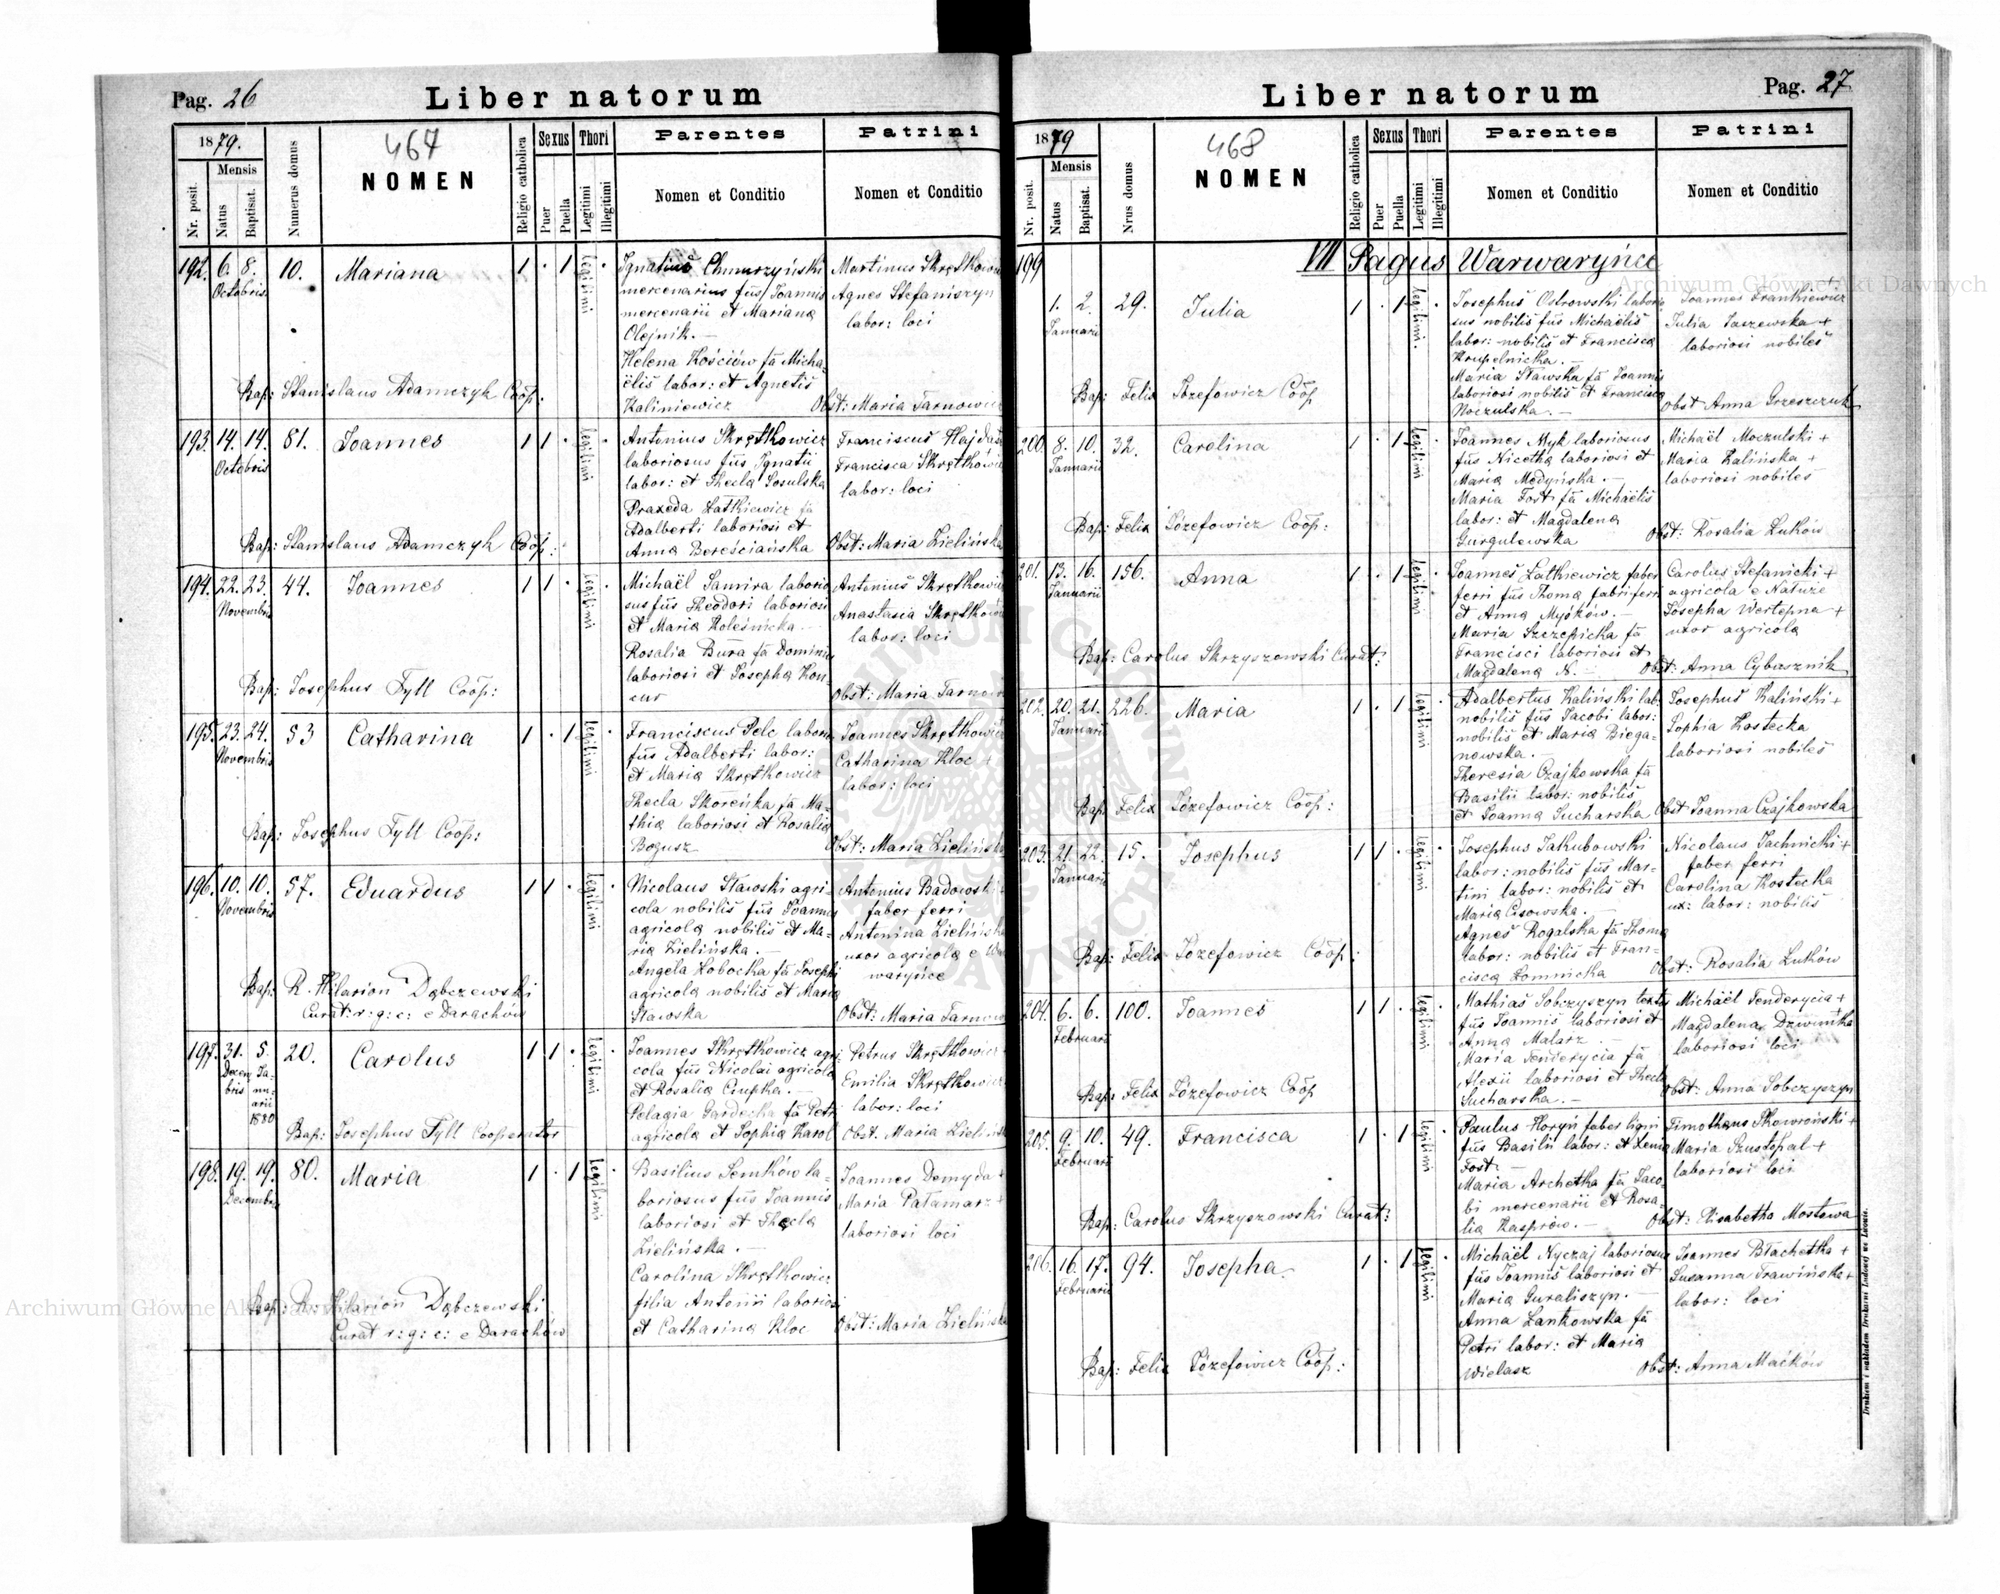 Pag. 26
Liber natorum
1879.
Nr. posit.
Mensis
Natus
Baptisat.
Numerus domus
467
NOMEN
Religio catholica
Sexus
Puer
Puella
Thori
Legitimi
Illegitimi
Parentes
Nomen et Conditio
Patrini
Nomen et Conditio
192. 6. 8. 10. Mariana 1 . 1 legitimi .
Octobris
Ignatius Chmurzyński
mercenarius fus Joannis
mercenarii et Mariana
Olejnik. —
Helena Kościów fa Micha-
ëlis labor: et Agnetis
Kaliniewicz
Martinus Skrętkowicz
Agnes Stefaniszyn
labor: loci
Bap: Stanislaus Adamczyk Coop.
Obst: Maria Tarnowicz
193. 14. 14. 81. Joannes 1 1 . legitimi .
Octobris
Antonius Skrętkowicz
laboriosus fus Ignatii
labor: et Thecla Sosulska
Praxeda Latkiewicz fa
Adalberti laboriosi et
Anna Bereściańska
Franciscus
Francisca
labor: loci
Bap: Stanislaus Adamczyk Coop:
Obst: Maria Zielińska
194. 22. 23. 44. Joannes 1 1 . legitimi .
Novembris
Michaël Samira laborio
sus fus Theodori laboriosi
et Maria Koleśnicka
Rosalia Bura fa Dominici
laboriosi et Josepha Kon-
sur
Antonius
Anastasia
labor: loci
Bap: Josephus Tyll Coop:
Obst: Maria
195. 23. 24. 53 Catharina 1 . 1 legitimi .
Novembris
Franciscus Pelc labor:
fus Adalberti labor:
et Maria Skrętkowicz
Thecla Skoreńka fa Ma-
thia laboriosi et Rosalia
Bogusz
Joannes
Catharina Kloc +
labor: loci
Bap: Josephus Tyll Coop:
Obst: Maria Zielińska
196. 10. 10. 57. Eduardus 1 1 . legitimi .
Novembris
Nicolaus Stawski agri-
cola nobilis fus Joannis
agricola nobilis et Ma-
ria Zielińska. —
Angela Kobocka fa Josephi
agricola nobilis et Maria
Stawska
Antonius Badowski
faber ferri
Antonina Zielińska
uxor agricola e War
waryńce
Bap: R. Hilarion Dąbczewski
Curat: r: g: c: e Darachów
Obst: Maria
197. 31. 5. 20. Carolus 1 1 . legitimi .
Decem
bris
Ja-
nu-
arii
1880
Joannes Skrętkowicz agri
cola fus Nicolai agricola
et Rosalia Ciupka. —
Pelagia Gardecka fa Petri
agricola et Sophia Karol
Petrus
Emilia
labor: loci
Bap: Josephus Tyll Cooperator
Obst. Maria
198. 19. 19. 80. Maria 1 . 1 legitimi
Decembris
Basilius Semków la-
boriosus fus Joannis
laboriosi et Thecla
Zielińska. —
Carolina Skrętkowicz
filia Antonii laboriosi
et Catharina Kloc
Joannes Demyda +
Maria Patamarz +
laboriosi loci
Bap: R. Hilarion Dąbczewski
Curat r: g: c: e Darachów
Obst: Maria Zielińska
Liber natorum
Pag. 27
1879
Nr. posit.
Mensis
Natus
Baptisat.
Nrus domus
468
NOMEN
Religio catholica
Sexus
Puer
Puella
Thori
Legitimi
Illegitimi
Parentes
Nomen et Conditio
Patrini
Nomen et Conditio
VII Pagus Warwaryńce
199 1. 2. 29. Julia 1 . 1 legitimi .
Januarii
Josephus Ostrowski labori
sus nobilis fus Michaëlis
labor: nobilis et Francisca
Krupelnicka. —
Maria Stawska fa Joannis
laboriosi nobilis et Francisca
Koczulska. —
Joannes Frankiewicz
Julia Jaszewska +
laboriosi nobiles
Bap: Felix Józefowicz Coop
Obst Anna Grzeszczuk
200. 8. 10. 32. Carolina 1 . 1 legitimi .
Januarii
Joannes Myk laboriosus
fus Nicetha laboriosi et
Maria Medyńska. —
Maria Fost fa Michaëlis
labor: et Magdalena
Gurgulewska
Michaël Moczulski +
Maria Kalińska +
laboriosi nobiles
Bap: Felix Józefowicz Coop:
Obst: Rosalia Łuków
201. 13. 16. 156. Anna 1 . 1 legitimi .
Januarii
Joannes Latkiewicz faber
ferri fus Thoma fabri ferri
et Anna Myśków. —
Maria Szczepicka fa
Francisci laboriosi et
Magdalena N. —
Carolus Stefanicki +
agricola e Natuże
Josepha Wertepna +
uxor agricola
Bap: Carolus Skrzyszewski Curat:
Obst: Anna Cybasznik
202. 20. 21. 226. Maria 1 . 1 legitimi .
Januarii
Adalbertus Kaliński lab:
nobilis fus Jacobi labor:
nobilis et Maria Biega-
nowska. —
Theresia Czajkowska fa
Basilii labor: nobilis
et Joanna Sucharska
Josephus Kaliński +
Sophia Kostecka
laboriosi nobiles
Bap: Felix Józefowicz Coop:
Obst Joanna Czajkowska
203. 21. 22. 15. Josephus 1 1 . legitimi .
Januarii
Josephus Jakubowski
labor: nobilis fus Mar-
tini labor: nobilis et
Maria Cisowska. —
Agnes Rogalska fa Thoma
labor: nobilis et Fran-
cisca Łomnicka
Nicolaus Jachnicki +
faber ferri
Carolina Kostecka
ux: labor: nobilis
Bap: Felix Józefowicz Coop:
Obst: Rosalia Łuków
204. 6. 6. 100. Joannes 1 1 . legitimi .
Februarii
Mathias Sobczyszyn textor
fus Joannis laboriosi et
Anna Malarz —
Maria Tenderycia fa
Alexii laboriosi et Thecla
Sucharska. —
Michaël Tenderycia +
Magdalena Dzwinika
laboriosi loci
Bap: Felix Józefowicz Coop
Obst: Anna Sobczyszyn
205. 9. 10. 49. Francisca 1 . 1 legitimi .
Februarii
Paulus Horyń faber lign
fus Basilii labor: et Xenia
Fost. —
Maria Archetka fa Jaco-
bi mercenarii et Rosa-
lia Kaspriow. —
Timotheus Skowroński +
Maria Szustopal +
laboriosi loci
Bap: Carolus Skrzyszowski Curat:
Obst: Elisabetha Mostowa
206. 16. 17. 94. Josepha 1 . 1 legitimi .
Februarii
Michaël Nyczaj laboriosus
fus Joannis laboriosi et
Maria Guraliszyn. —
Anna Lankowska fa
Petri labor: et Maria
Wielasz
Joannes Błachetka +
Susanna Trawińska +
labor: loci
Bap: Felix Józefowicz Coop:
Obst: Anna Maćków
Drukiem i nakładem Drukarni Ludowej we Lwowie.
Archiwum Główne Akt Dawnych
Archiwum Główne Akt Dawnych
ARCHIWUM GŁÓWNE AKT DAWNYCH